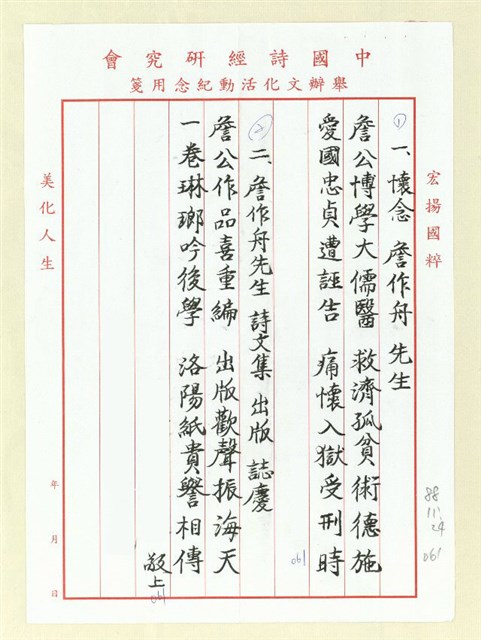 中國詩經研究會
舉辦文化活動紀念用箋
宏揚國粹
① 一、懷念 詹作舟 先生
詹公博學大儒醫 救濟孤貧術德施
愛國忠貞遭誣告 痛懷入獄受刑時
061
② 二、詹作舟先生 詩文集 出版 誌慶
詹公作品喜重編 出版歡聲振海天
一卷琳瑯吟後學 洛陽紙貴譽相傳
敬上
061
美化人生
年 月 日
88
11
24
061